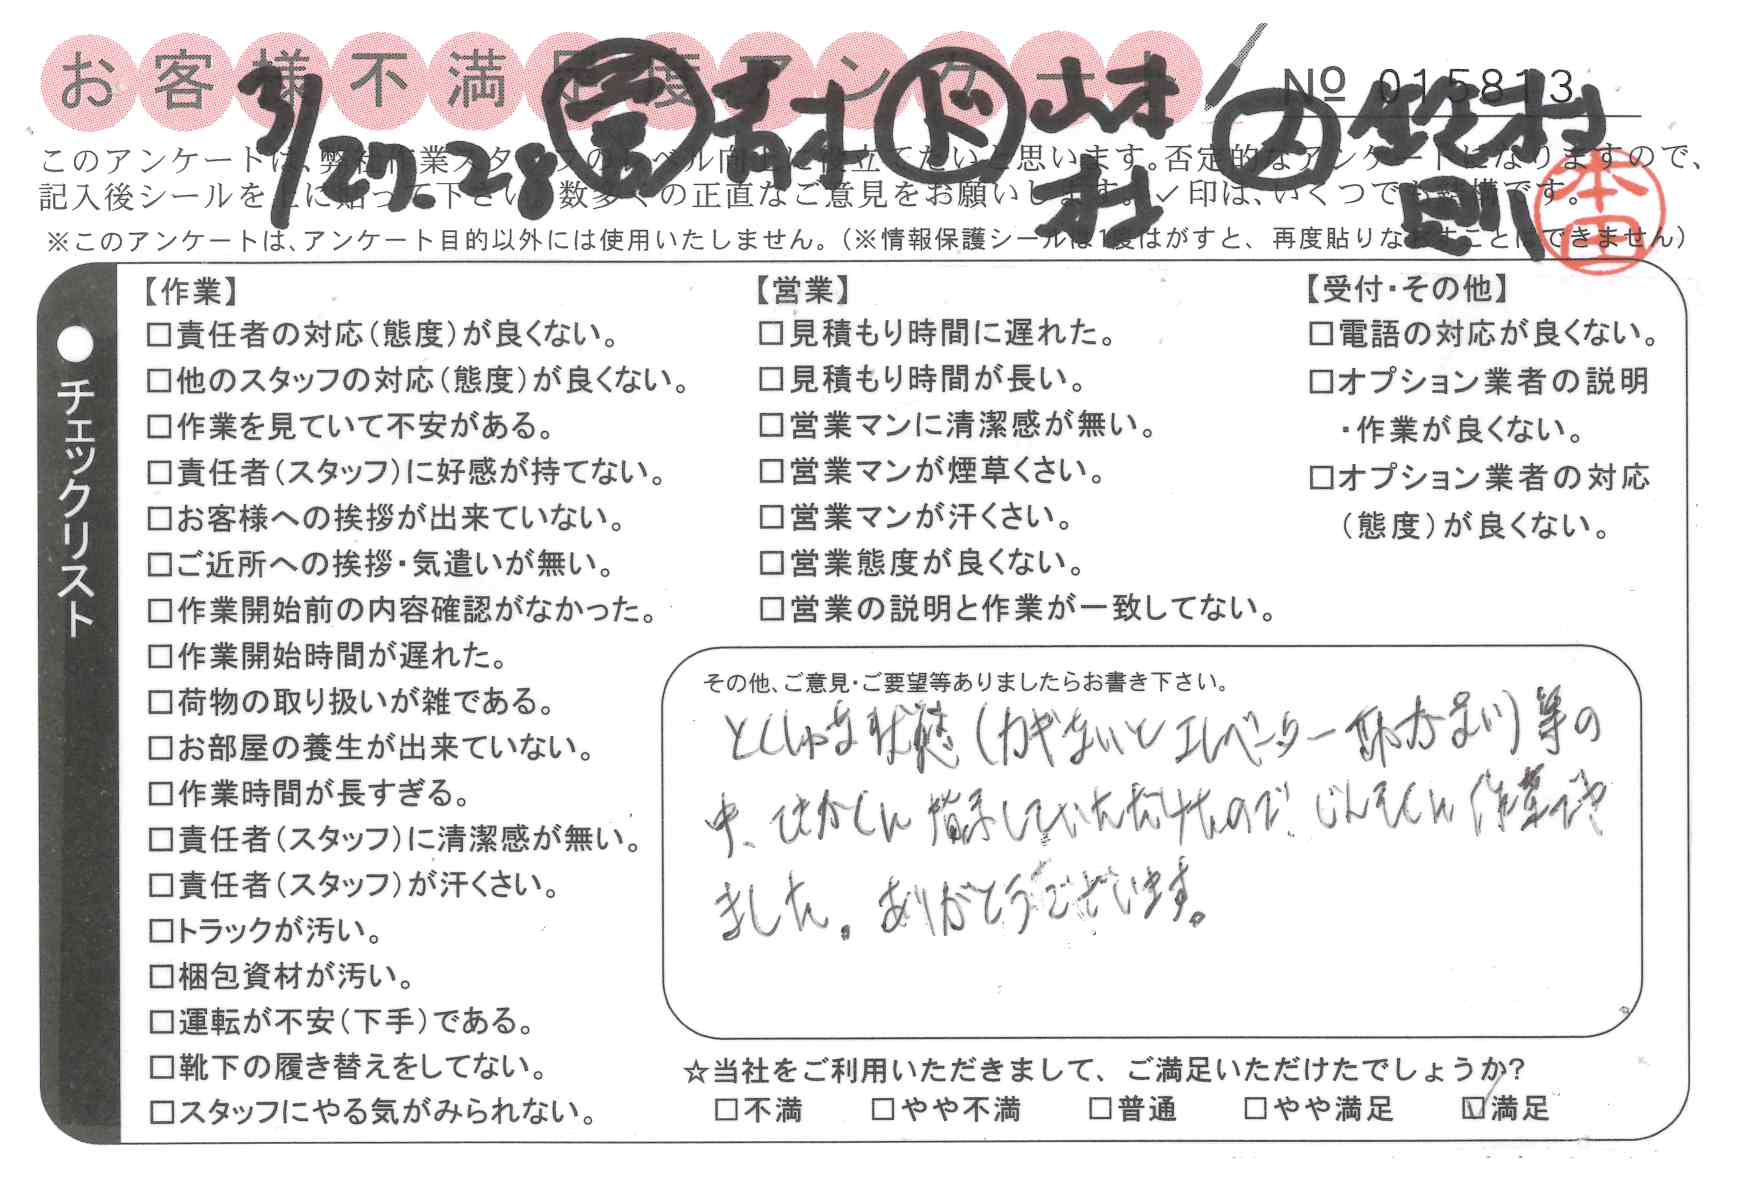 お客様不満足度アンケート
No 015813
3/27.28 営 青木 ド 山村 村 メ 鈴村 則
このアンケートは、弊社作業スタッフのレベル向上に役立てたいと思います。否定的なアンケートになりますので、
記入後シールを上に貼って下さい。数多くの正直なご意見をお願いします。✓印は、いくつでも結構です。
本田
※このアンケートは、アンケート目的以外には使用いたしません。(※情報保護シールは1度はがすと、再度貼りなおすことはできません)
チェックリスト
【作業】
□責任者の対応(態度)が良くない。
□他のスタッフの対応(態度)が良くない。
□作業を見ていて不安がある。
□責任者(スタッフ)に好感が持てない。
□お客様への挨拶が出来ていない。
□ご近所への挨拶・気遣いが無い。
□作業開始前の内容確認がなかった。
□作業開始時間が遅れた。
□荷物の取り扱いが雑である。
□お部屋の養生が出来ていない。
□作業時間が長すぎる。
□責任者(スタッフ)に清潔感が無い。
□責任者(スタッフ)が汗くさい。
□トラックが汚い。
□梱包資材が汚い。
□運転が不安(下手)である。
□靴下の履き替えをしてない。
□スタッフにやる気がみられない。
【営業】
□見積もり時間に遅れた。
□見積もり時間が長い。
□営業マンに清潔感が無い。
□営業マンが煙草くさい。
□営業マンが汗くさい。
□営業態度が良くない。
□営業の説明と作業が一致してない。
【受付・その他】
□電語の対応が良くない。
□オプション業者の説明
・作業が良くない。
□オプション業者の対応
(態度)が良くない。
その他、ご意見・ご要望等ありましたらお書き下さい。
とくしゅな状態(カギないとエレベーター動かない)等の
中、せかくん指示していただけたので、じんそくに作業でき
ました。ありがとうございます。
☆当社をご利用いただきまして、ご満足いただけたでしょうか?
□不満 □やや不満 □普通 □やや満足 ☑満足